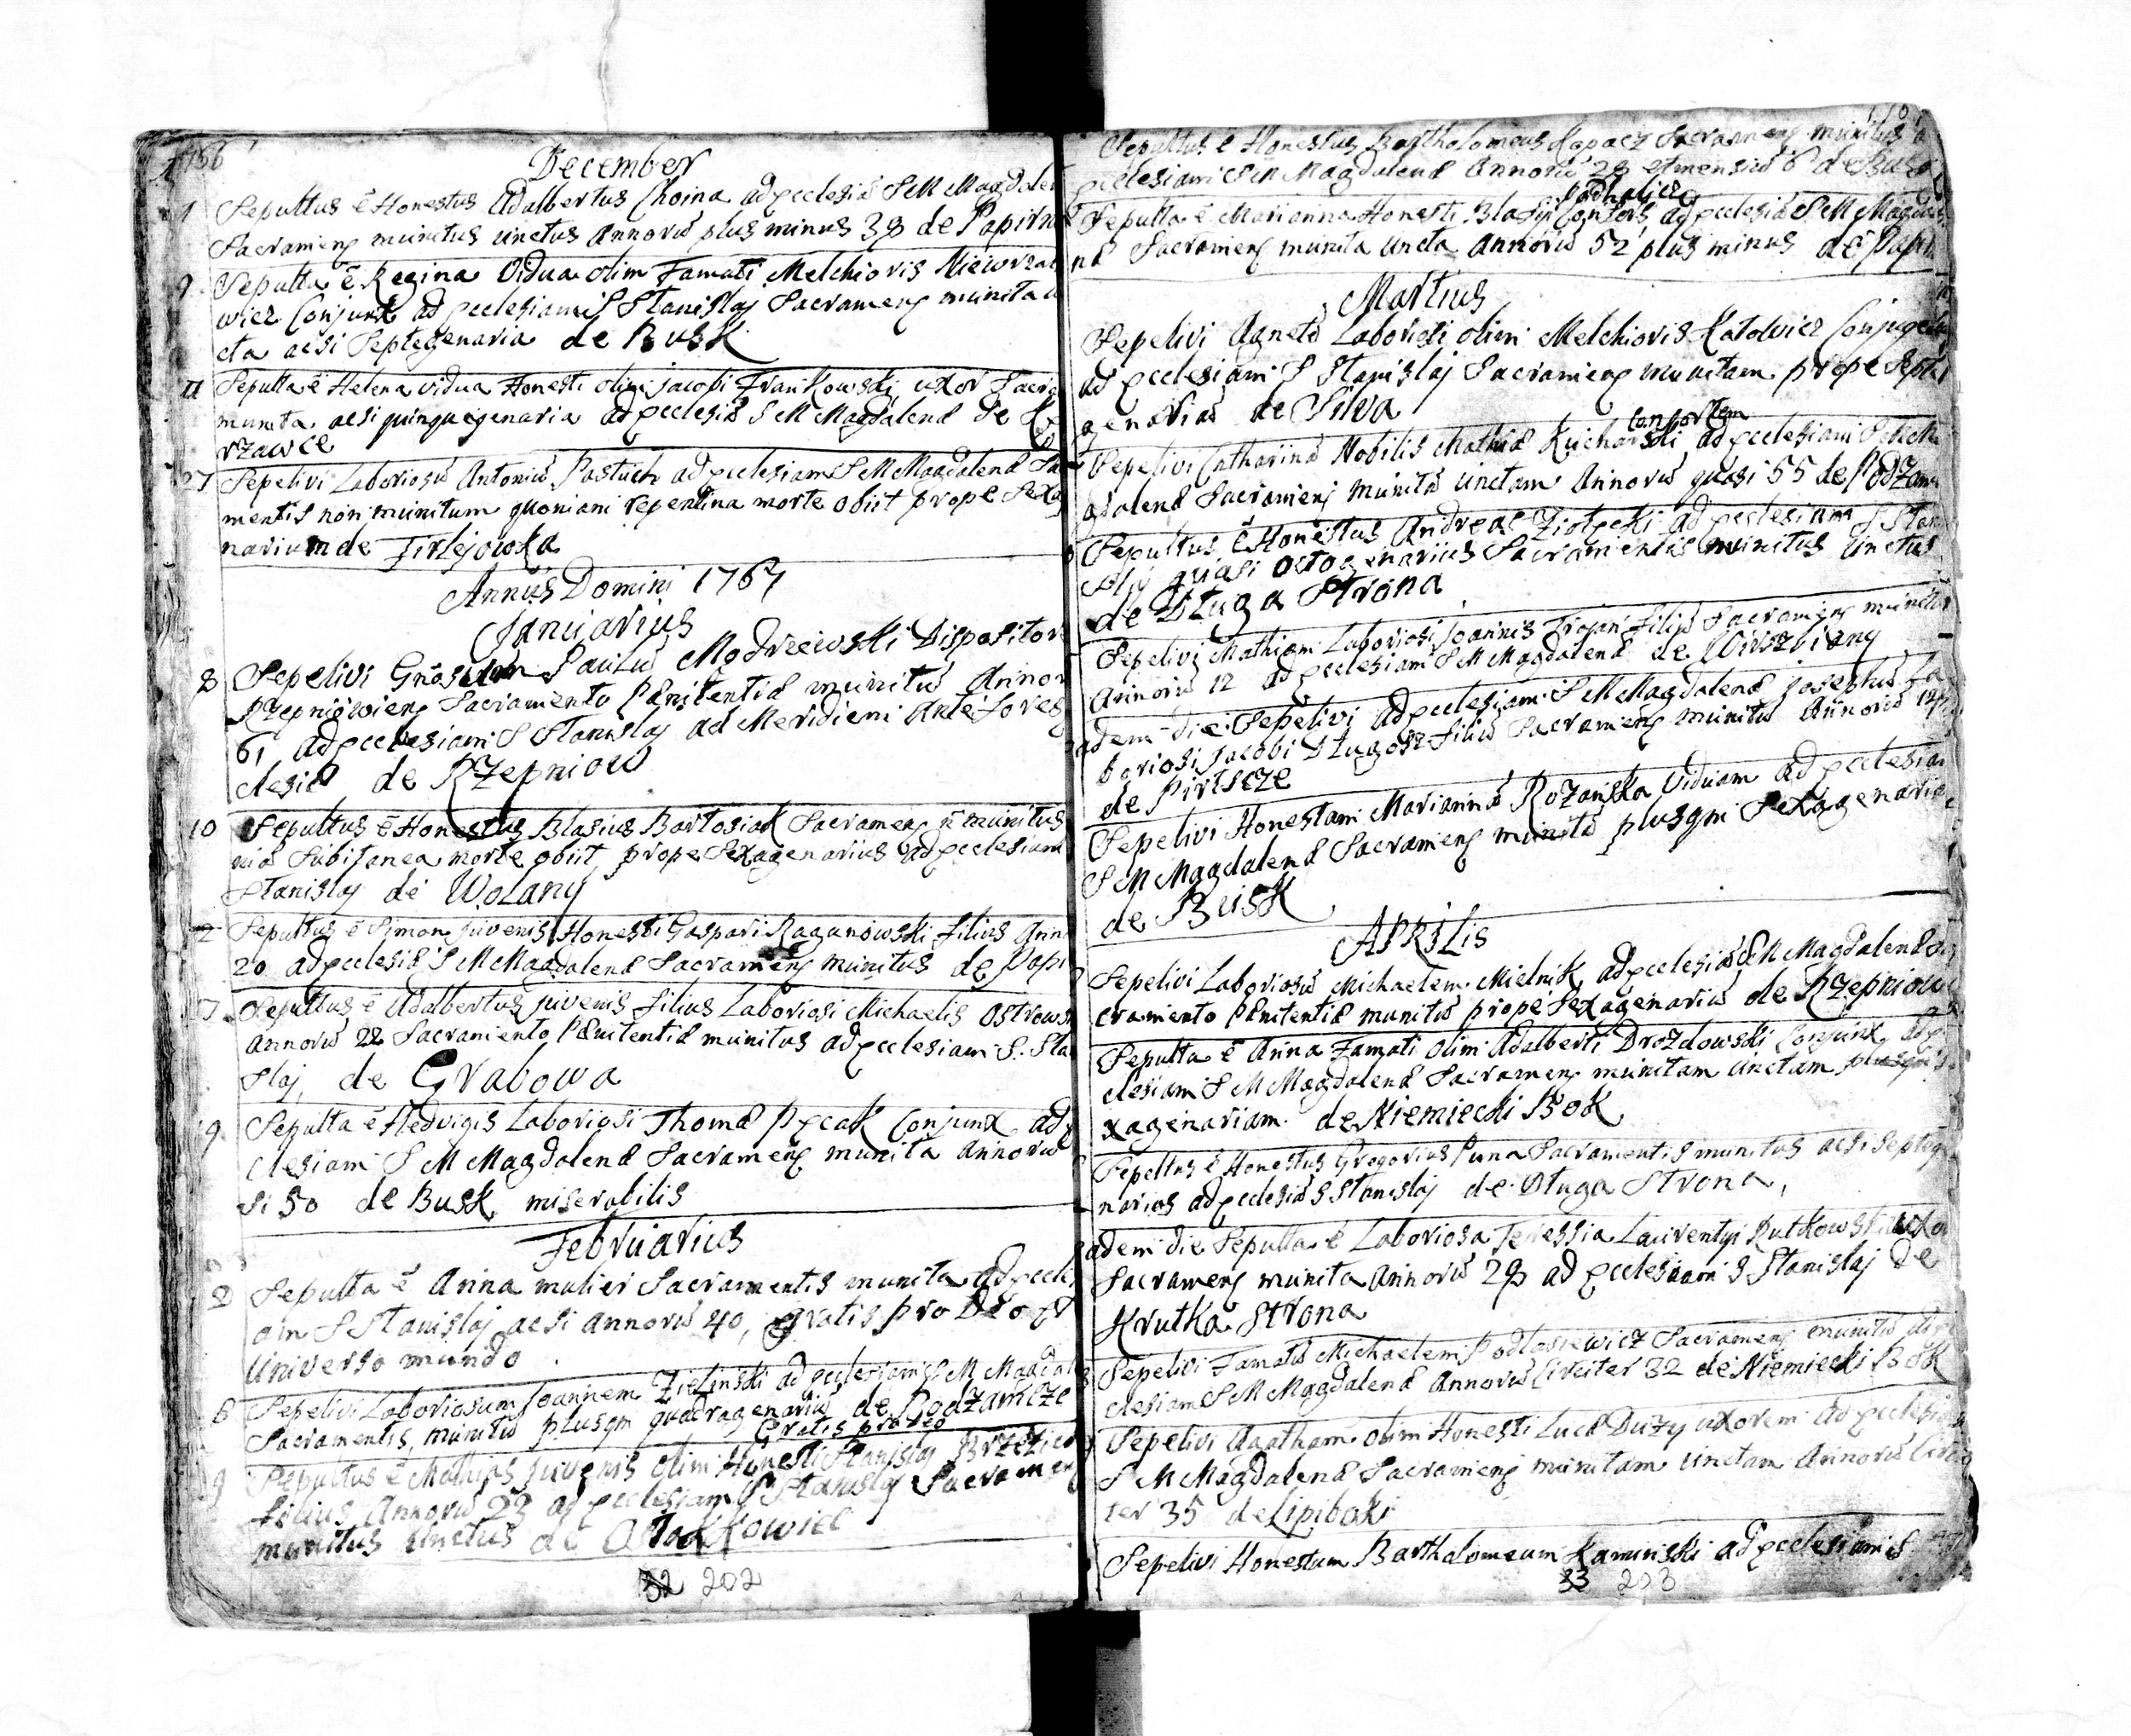 1766
December
1 Sepultus ē Honestus Adalbertus Choina ad Ecclesiā S M Magdalen
Sacramentis munitus unctus Annorū plus minus 38 de Papirn
9 Sepulta ē Regina Vidua olim Famati Melchioris
wicz Conjunx ad Ecclesiam S Stanislaj Sacramentis munita u
cta acsi Septegenaria de Busk
11 Sepulta ē Helena vidua Honesti olim Jacobi Frankowski, uxor Sacra
munita acsi quinquegenaria ad Ecclesiā S M Magdalenæ de
rzawce
27 Sepelivi Laboriosū Antoniū Pastuch ad Ecclesiam S M Magdalenæ Sa
mentis non munitum quoniam repentina morte obiit prope Sexa
narium de Firlejowka
Annus Domini 1767
Januarius
8 Sepelivi Gnosum Paulū Modrzewski Dispositor
Rzepniowien Sacramento Pænitentiæ munitū Annor
61 ad Ecclesiam S Stanislaj ad Meridiem Ante fores
clesiæ de Rzepniow
10 Sepultus ē Honestus Blasius Bartosiak Sacramentis n munitus
nia Subitanea morte obiit prope Sexagenarius ad Ecclesiam
Stanislaj de Wolany
12 Sepultus ē Simon juvenis Honesti Gaspari Raganowski filius Ann
20 ad Ecclesiā S M Magdalenæ Sacramentis munitus de Papi
17 Sepultus ē Adalbertus juvenis filius Laboriosi Michaelis Ostrows
Annorū 22 Sacramento Pænitentiæ munitus ad Ecclesiam S. Sta
slaj, de Grabowa
19 Sepulta ē Hedvigis Laboriosi Thomæ Conjunx ad
clesiam S M Magdalenæ Sacramentis munita Annorū
si 50 de Busk miserabilis
Februarius
2 Sepulta ē Anna mulier Sacramentis munita ad Eccle
am S Stanislaj acsi annorū 40, gratis pro Deo et
Universo mundo
6 Sepelivi Laboriosum Joannem Zielinski ad Ecclesiam S M Magdal
Sacramentis, munitū plusqm quadragenariū de Podzamcze
Gratis pro Deo
9 Sepultus ē Mathias juvenis olim Honesti Stanislaj
filius Annorū 23 ad Ecclesiam S Stanislaj Sacrament
munitus unctus de
32 202
Sepultus ē Honestus Bartholomeus Kopacz Sacramentis munitus a
Ecclesiam S M Magdalenæ Annorū 28 et mensiū 6 de Busk
Podhalicz
Sepulta ē Marianna Honesti Blasii Consors ad Ecclesiā S M Magdal
næ Sacramentis munita uncta Annorū 52 plus minus de Papir
Martius
Sepelivi Agnetē Laboriosi olim Melchioris Katowicz Conjugem
ad Ecclesiam S Stanislaj Sacramentis munitam prope Septu
agenariā de Silva
Consortem
Sepelivi Catharinā Nobilis Mathiæ Kucharski ad Ecclesiam S M Ma
gdalenæ Sacramentis munitā unctam Annorū quasi 55 de Podzam
Sepultus ē Honestus Andreas Ziolecki ad Ecclesiam S Stan
slaj quasi octogenarius Sacramentis munitus unctus
de Dluga Strona
Sepelivi Mathiam Laboriosi Joannis Trojan filiū Sacramentis munitū
Annorū 12 ad Ecclesiam S M Magdalenæ de
eadem die Sepelivi ad Ecclesiam S M Magdalenæ Josephū La
boriosi Jacobi Dlugosz filiū Sacramentis munitū Annorū 12
de
Sepelivi Honestam Mariannā Rozanska Viduam ad Ecclesiam
S M Magdalenæ Sacramentis munitā plusqm Sexagenariā
de Busk
Aprilis
Sepelivi Laboriosū Michaelem Mielnik ad Ecclesiā S M Magdalenæ Sa
cramento Pænitentiæ munitū prope Sexagenariū de Rzepniow
Sepulta ē Anna Famati olim Adalberti Drozdowski Conjunx ad E
clesiam S M Magdalenæ Sacramentis munitam unctam plusqm s
xagenariam de Niemiecki Bok
Sepultus ē Honestus Gregorius Puna Sacramentis munitus acsi septeg
narius ad Ecclesiā S Stanislaj de Dluga Strona,
eadem die Sepulta ē Laboriosa Teressia Laurentyi Rutkowski uxor
Sacramentis munita Annorū 28 ad Ecclesiam S Stanislaj de
Krutka Strona
Sepelivi Famatū Michaelem Podlasiewicz Sacramentis munitū ad E
clesiam S M Magdalenæ Annorū Circiter 32 de Niemiecki Bok
Sepelivi Agatham olim Honesti Lucæ Duzy uxorem ad Ecclesiam
S M Magdalenæ Sacramentis munitam unctam Annorū Circi
ter 35 de Lipiboki
Sepelivi Honestum Bartholomeum Kaminski ad Ecclesiam S
33 203